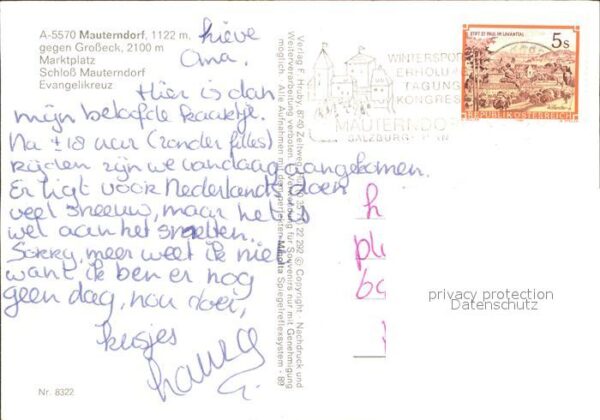 A-5570 Mauterndorf, 1122 m,
gegen Großeck, 2100 m
Marktplatz
Schloß Mauterndorf
Evangelikreuz
Lieve
Oma.
Hier is dan
mijn beloofde kaartje.
Na ±18 uur (zonder files)
rijden zijn we vandaag aangekomen.
Er ligt voor Nederlands doen
veel sneeuw, maar het is
wel aan het smelten.
Sorry, meer weet ik nie
want ik ben er nog
geen dag, nou doei,
kusjes
Nr. 8322
Verlag F. Hruby, 8740 Zeltweg, © Copyright · Nachdruck und
Weiterverarbeitung verboten. Verwendung für Souvenirs nur mit Genehmigung
möglich. Alle Aufnahmen mit dem Minolta Spiegelreflexsystem - 89
WINTERSPOR
ERHOLU
TAGUN
KONGRES
MAUTERNDO
SALZBURG
STIFT ST. PAUL IM LAVANTTAL
5s
REPUBLIK ÖSTERREICH
h
pl
privacy protection
Datenschutz